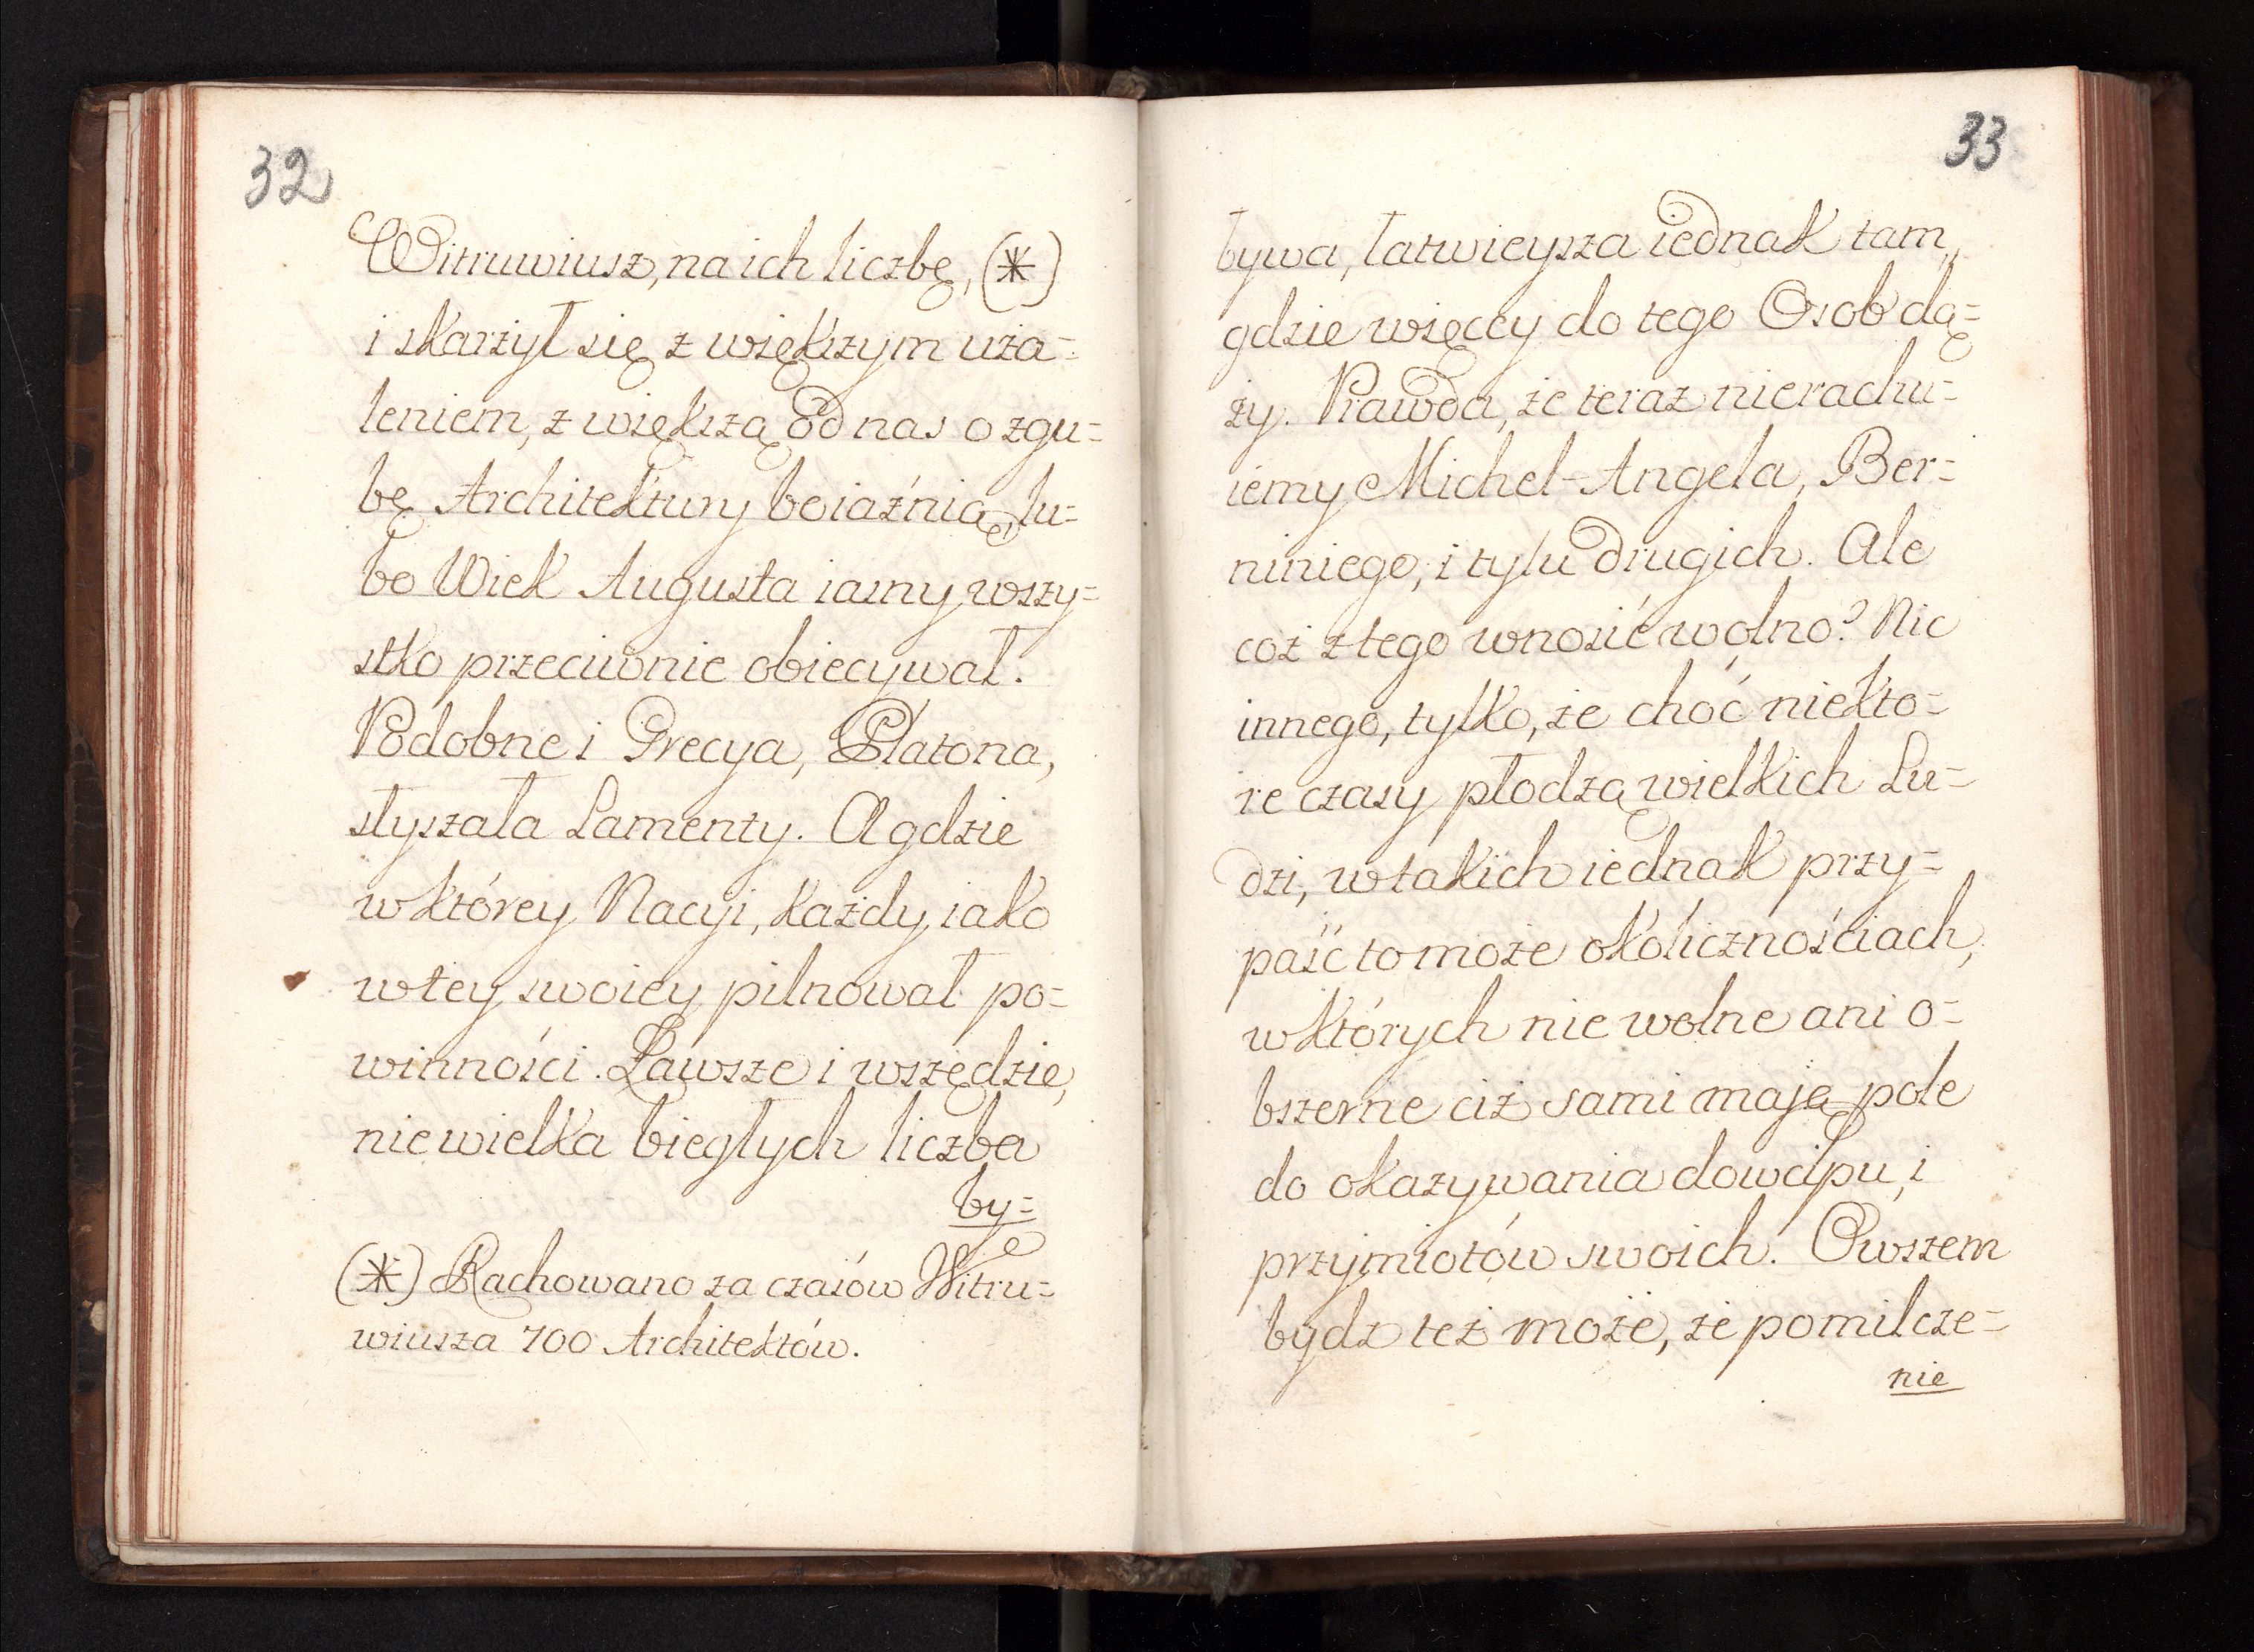 32
Witruwiusz, na ich liczbę, (*)
i skarżył się z większym uża=
leniem, z większą od nas o zgu=
bę Architektury boiaźnią, lu=
bo Wiek Augusta iasny wszy=
stko przeciwnie obiecywał.
Podobne i Grecya, Platona,
słyszała Lamenty. A gdzie
w którey Nacyi, każdy iako
w tey swoiey pilnował po=
winności. Zawsze i wszędzie,
nie wielka biegłych liczba
by=
(*) Rachowano za czasów Witru=
wiusza 700 Architektów.
33
bywa, łatwieysza iednak tam,
gdzie więcey do tego Osob dą=
ży. Prawda, że teraz nierachu=
iemy Michel-Angela, Ber=
niniego, i tylu drugich. Ale
coż z tego wnosić wolno? Nic
innego, tylko, że choć niekto=
re czasy płodzą wielkich Lu=
dzi, w takich iednak przy=
paść to może okolicznościach,
w których nie wolne ani o=
bszerne ciż sami mają pole
do okazywania dowcipu, i
przymiotów swoich. Owszem
bydz też może, że pomilcze=
nie